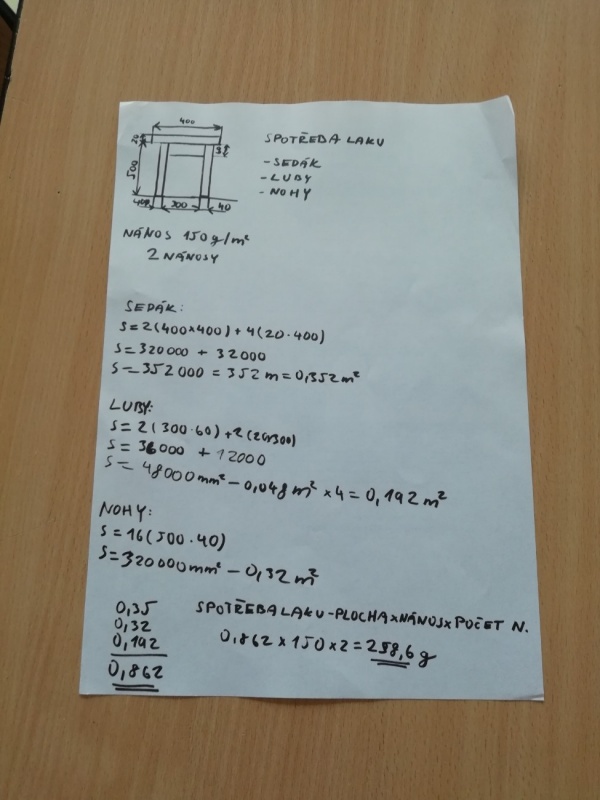 400
20
500
40
300
40
SPOTŘEBA LAKU
- SEDÁK
- LUBY
- NOHY
NÁNOS 150g/m²
2 NÁNOSY
SEDÁK:
S=2(400×400)+4(20·400)
S=320000 + 32000
S=352000 = 352m=0,352m²
LUBY:
S=2(300·60)+2(20×300)
S=36000 + 12000
S=48000mm²-0,048m²×4=0,192m²
NOHY:
S=16(500·40)
S=320000mm²-0,32m²
0,35
0,32
0,192
0,862
SPOTŘEBA LAKU-PLOCHA×NÁNOS×POČET N.
0,862×150×2=258,6g